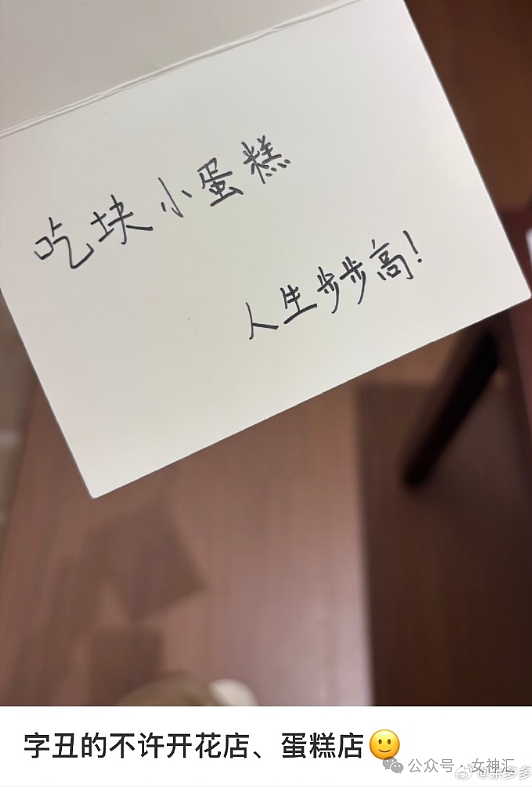 吃块小蛋糕
人生步步高!
字丑的不许开花店、蛋糕店🙂
公众号·女神汇